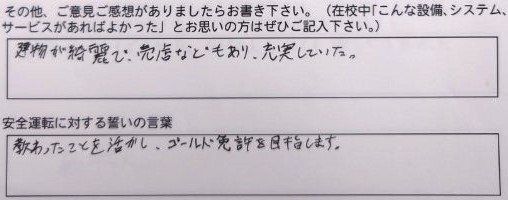 その他、ご意見ご感想がありましたらお書き下さい。（在校中「こんな設備、システム、
サービスがあればよかった」とお思いの方はぜひご記入下さい。）
建物が綺麗で、売店などもあり、充実していた。
安全運転に対する誓いの言葉
教わったことを活かし、ゴールド免許を目指します。